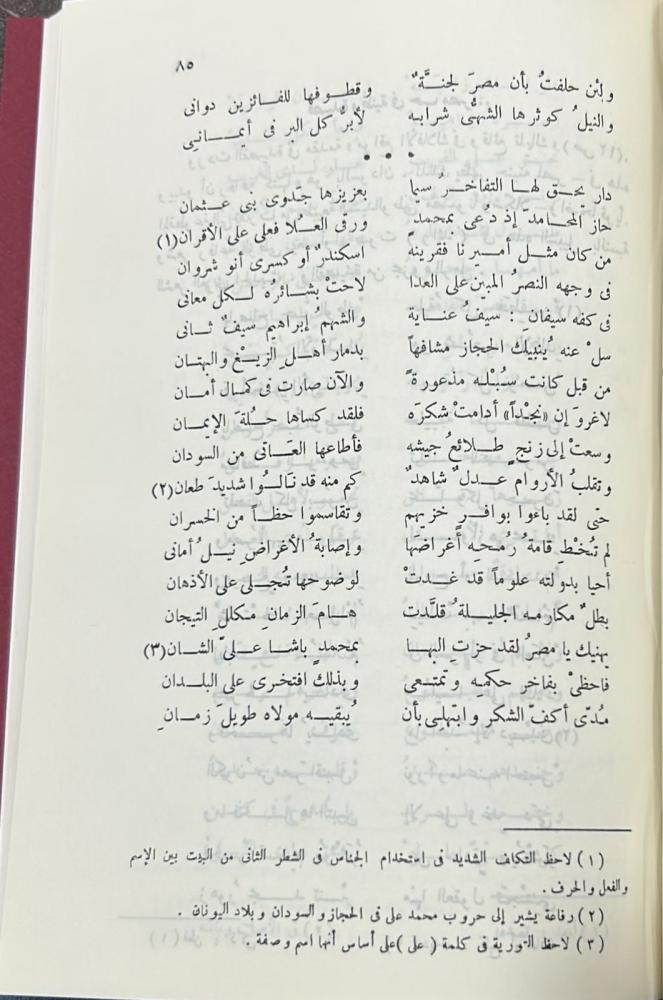 ٨٥
ولئن حلفتُ بأن مصرَ لجنَّةٌ وقطوفها للفائزين دوانى
والنيلُ كوثرها الشهىُّ شرابه لأبرُّ كل البر فى أيمانيى
• • •
دار يحق لها التفاخرُ سيما بعزيزها جدوى بنى عثمان
حاز المحامدَ إذ دُعى بمحمدٍ ورقى العلا فعلى على الأقران (١)
من كان مثل أميرنا فقرينه اسكندرٌ أو كسرى أنو شروان
فى وجهه النصرُ المبين على العدا لاحتْ بشائرُه لكل معانى
فى كفه سيفانِ : سيفُ عناية والشهمُ إبراهيم سيفٌ ثانى
سلْ عنه يُنبيك الحجاز مشافهاً بدمار أهلِ الزيغْ والبهتان
من قبل كانت سُبْله مذعورةً والآن صارت فى كمال أمان
لاغروَ إن «نجْداً» أدامتْ شكرَه فلقد كساها حلةَ الإيمان
وسعتْ إلى زنجٍ طلائعُ جيشه فأطاعها العاتى من السودان
وتقلبُ الأروام عدلٌ شاهدٌ كم منه قد نالوا شديدَ طعان (٢)
حتى لقد باءوا بوافرِ خزيهم وتقاسموا حظاً من الخسران
لم تُخطِ قامةُ رُمحِه أغراضَها وإصابةُ الأغراضِ نيلُ أمانى
أحيا بدولته علوماً قد غدتْ لوضوحها تُجلى على الأذهان
بطلٌ مكارمه الجليلةُ قلَّدت هامَ الزمانِ مكللَ التيجان
يهنيك يا مصرُ لقد حزتِ البها بمحمدٍ باشا علىِّ الشان (٣)
فاحظىْ بفاخر حكمِه وتمتعى وبذلك افتخرى على البلدان
مُدّى أكفَّ الشكر وابتهلِى بأن يُبقيه مولاه طويلَ زمانِ
(١) لاحظ التكلف الشديد فى استخدام الجناس فى الشطر الثانى من البيت بين الإسم
والفعل والحرف .
(٢) رفاعة يشير إلى حروب محمد على فى الحجاز والسودان وبلاد اليونان .
(٣) لاحظ التورية فى كلمة (على) على أساس أنها اسم وصفة .